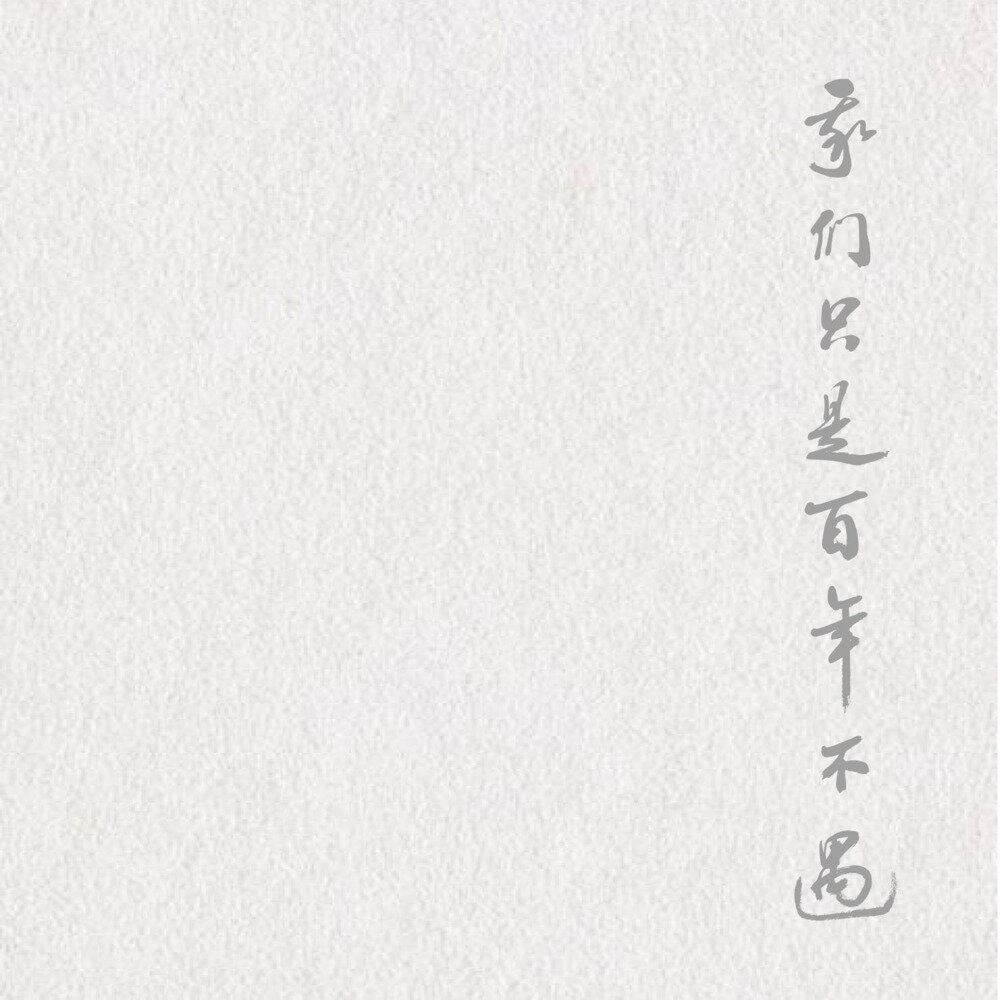 我们只是百年不遇